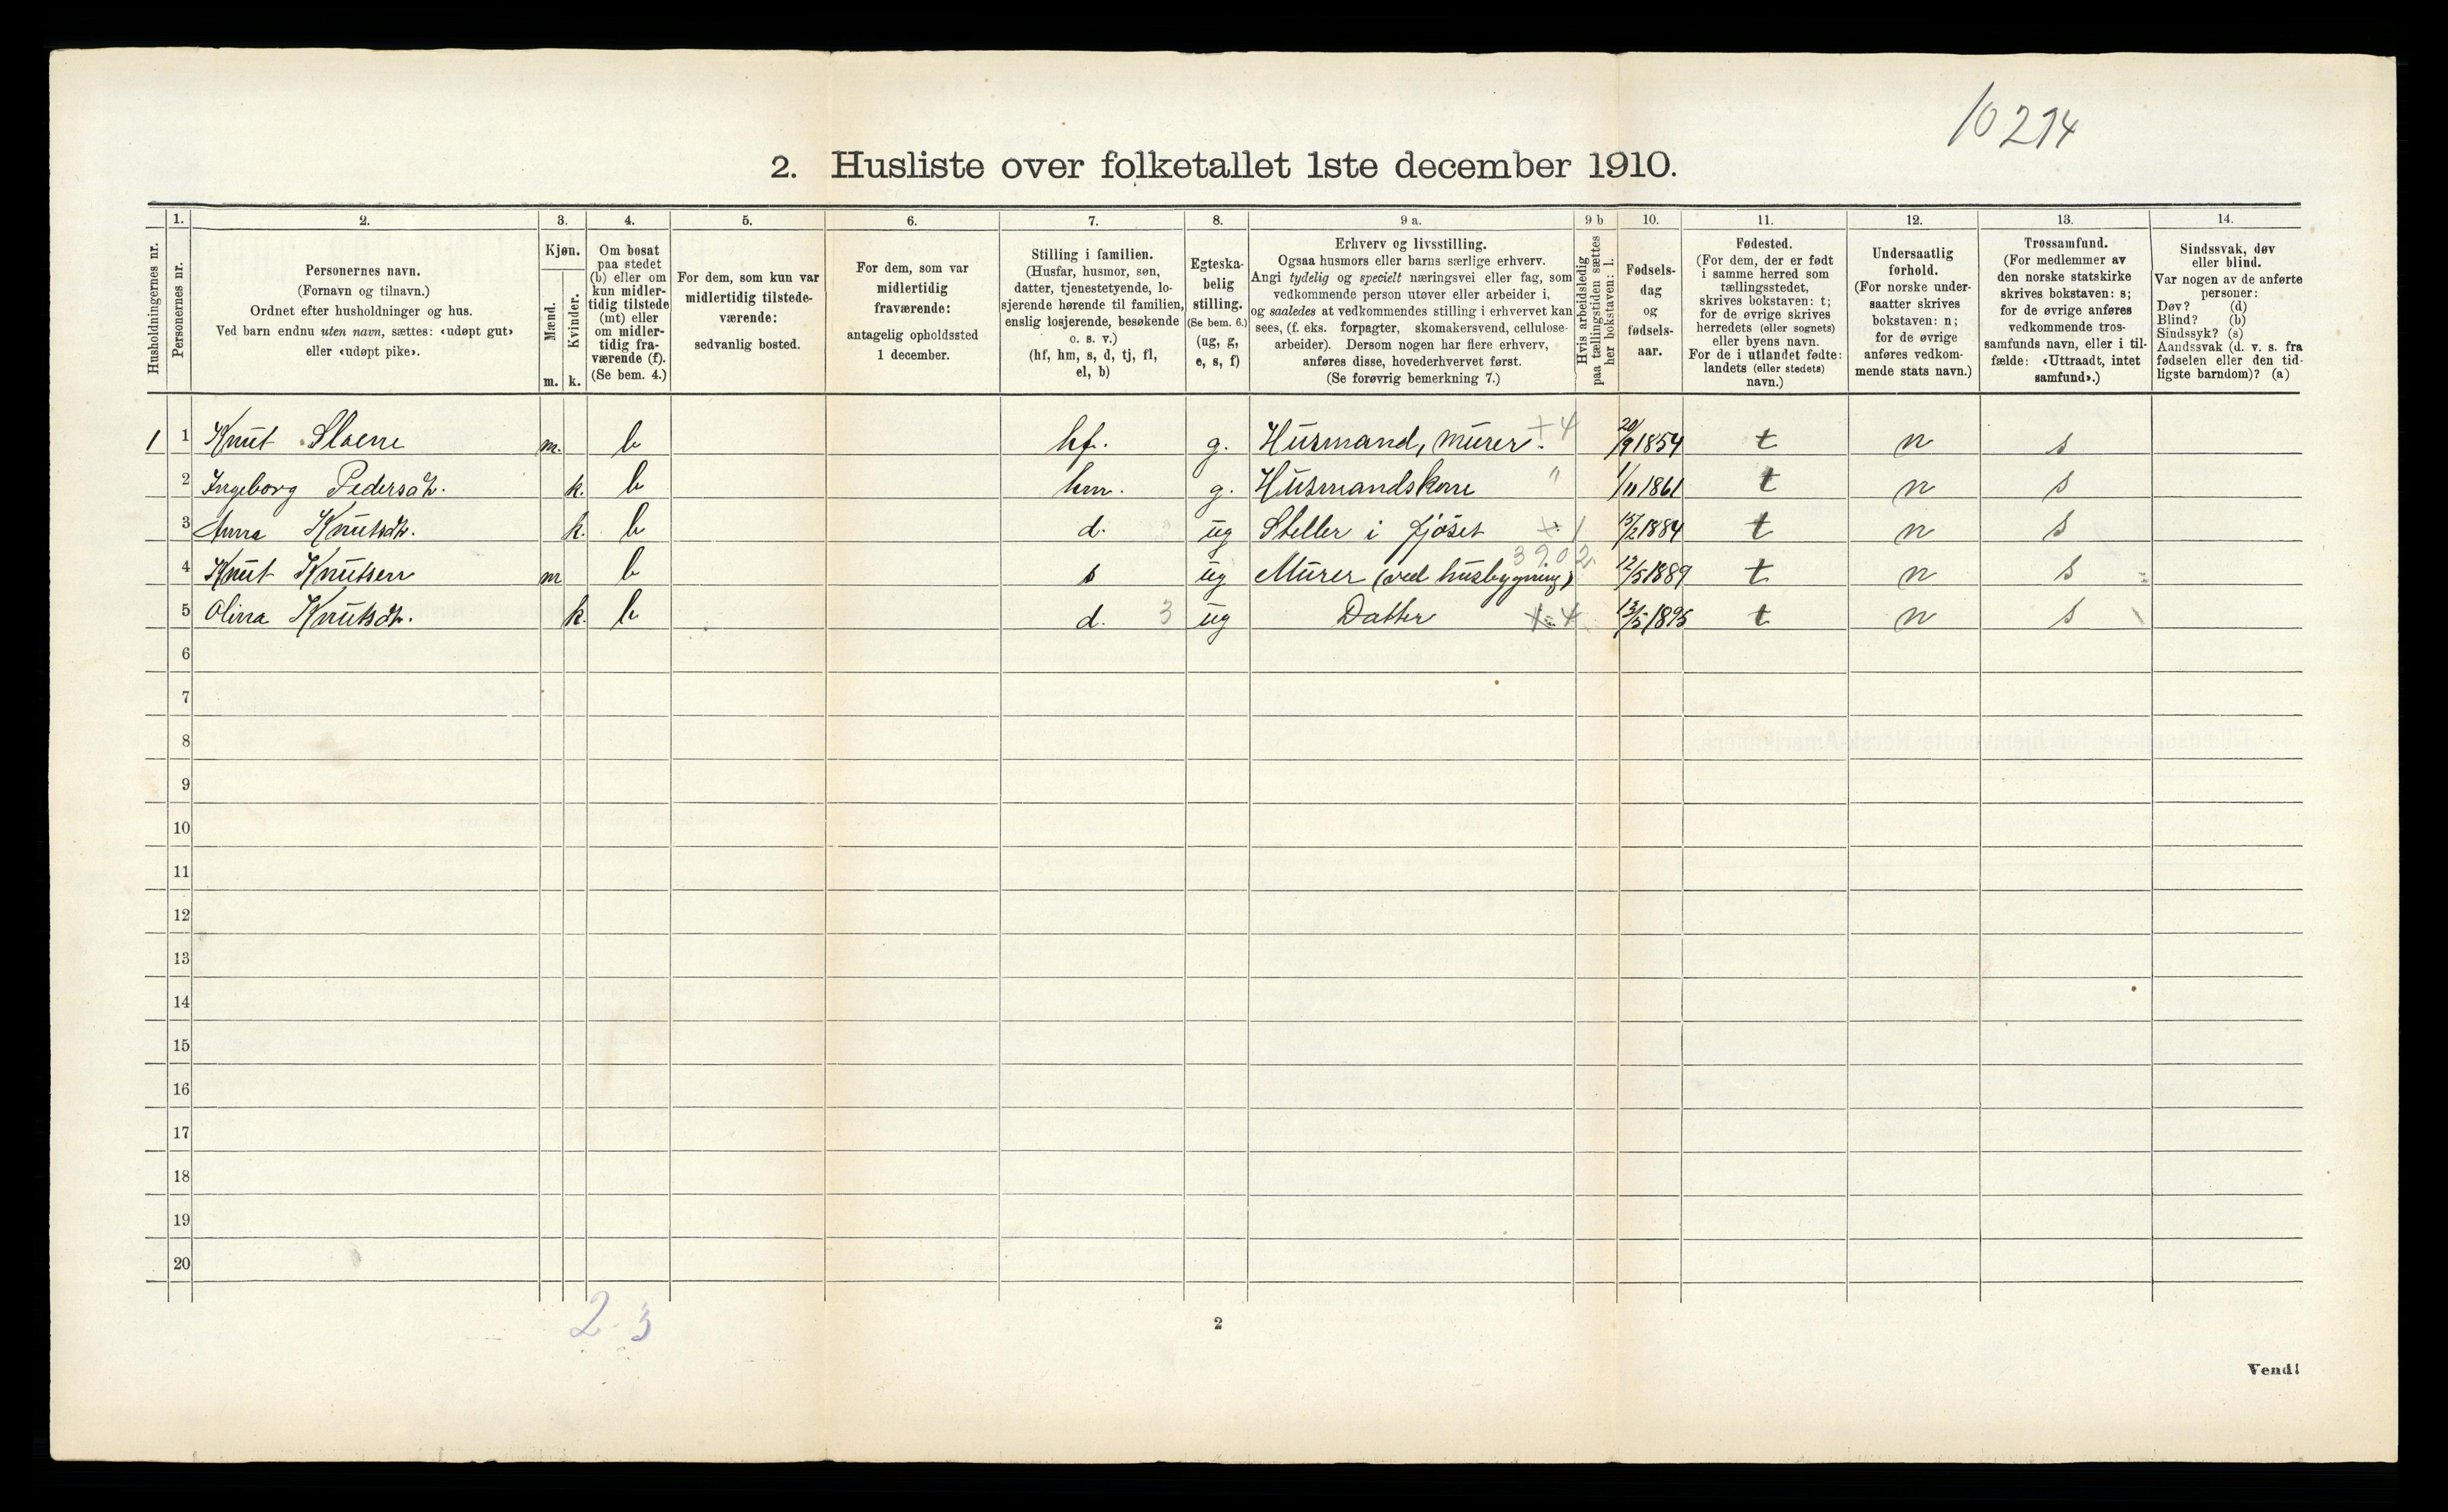 10214
2. Husliste over folketallet 1ste december 1910.
Husholdningernes nr.
1.
Personernes nr.
2.
Personernes navn.
(Fornavn og tilnavn.)
Ordnet efter husholdninger og hus.
Ved barn endnu uten navn, sættes: «udøpt gut»
eller «udøpt pike».
3.
Kjøn.
Mænd.
Kvinder.
m. k.
4.
Om bosat
paa stedet
(b) eller om
kun midler-
tidig tilstede
(mt) eller
om midler-
tidig fra-
værende (f).
(Se bem. 4.)
5.
For dem, som kun var
midlertidig tilstede-
værende:
sedvanlig bosted.
6.
For dem, som var
midlertidig
fraværende:
antagelig opholdssted
1 december.
7.
Stilling i familien.
(Husfar, husmor, søn,
datter, tjenestetyende, lo-
sjerende hørende til familien,
enslig losjerende, besøkende
o. s. v.)
(hf, hm, s, d, tj, fl,
el, b)
8.
Egteska-
belig
stilling.
(Se bem. 6.)
(ug, g,
e, s, f)
9 a.
Erhverv og livsstilling.
Ogsaa husmors eller barns særlige erhverv.
Angi tydelig og specielt næringsvei eller fag, som
vedkommende person utøver eller arbeider i,
og saaledes at vedkommendes stilling i erhvervet kan
sees, (f. eks. forpagter, skomakersvend, cellulose-
arbeider). Dersom nogen har flere erhverv,
anføres disse, hovederhvervet først.
(Se forøvrig bemerkning 7.)
9 b
Hvis arbeidsledig
paa tællingstiden sættes
her bokstaven: l.
10.
Fødsels-
dag
og
fødsels-
aar.
11.
Fødested.
(For dem, der er født
i samme herred som
tællingsstedet,
skrives bokstaven: t;
for de øvrige skrives
herredets (eller sognets)
eller byens navn.
For de i utlandet fødte:
landets (eller stedets)
navn.)
12.
Undersaatlig
forhold.
(For norske under-
saatter skrives
bokstaven: n;
for de øvrige
anføres vedkom-
mende stats navn.)
13.
Trossamfund.
(For medlemmer av
den norske statskirke
skrives bokstaven: s;
for de øvrige anføres
vedkommende tros-
samfunds navn, eller i til-
fælde: «Uttraadt, intet
samfund».)
14.
Sindssvak, døv
eller blind.
Var nogen av de anførte
personer:
Døv? (d)
Blind? (b)
Sindssyk? (s)
Aandssvak (d. v. s. fra
fødselen eller den tid-
ligste barndom)? (a)
1 1 Knut Sloene m. b hf. g. Husmand, murer. +4 20/9 1854 t n s
2 Ingeborg Pedersdt. k. b hm. g. Husmandskone " 1/11 1861 t n s
3 Anna Knutsdt. k. b d. ug Steller i fjøset 1 15/2 1884 t n s
3902
4 Knut Knutsen m b s ug Murer (ved husbygning) 12/5 1889 t n s
5 Olina Knutsdt. k. b d. 3 ug Datter 4 13/5 1895 t n s
6
7
8
9
10
11
12
13
14
15
16
17
18
19
20
2 - 3
2
Vend!